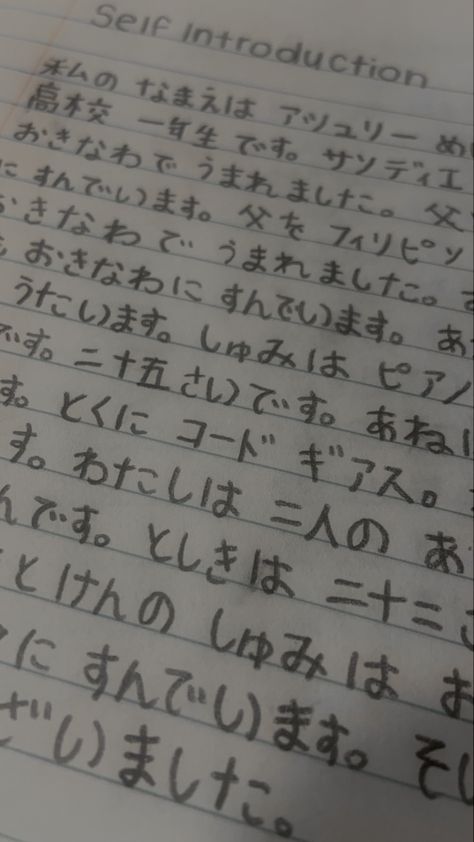 Self Introduction
私の なまえは アシュリー め
高校 一年生 です。 サンディエ
おきなわで うまれました。 父
に すんでいます。 父を フィリピン
おきなわで うまれました。
おきなわに すんでいます。 あ
うたいます。 しゅみは ピアノ
です。 二十五さいです。 あねは
す。 とくに コード ギアス。
す。 わたしは 二人の あ
んです。 としきは 二十二
とけんの しゅみは お
に すんでいます。 そし
ざいました。